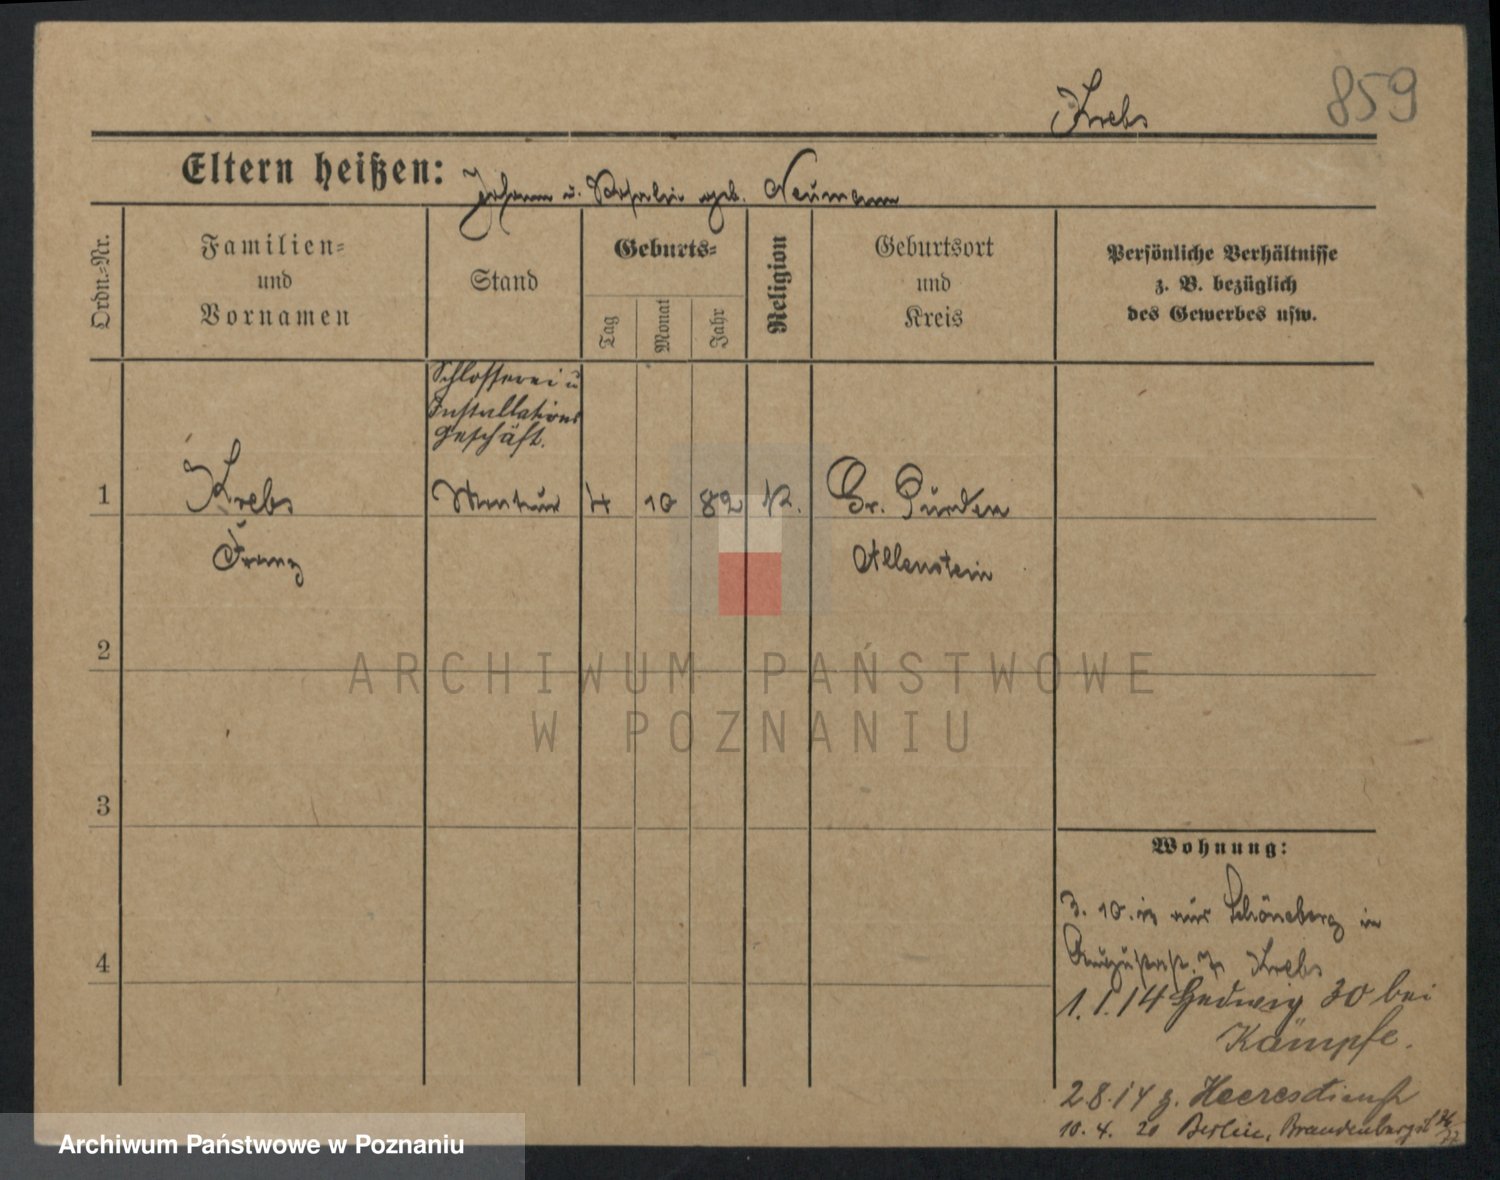 Krebs
859
Eltern heißen: Johann u. Rosalie geb. Neumann
Ordn.-Nr.
Familien-
und
Vornamen
Stand
Geburts-
Tag
Monat
Jahr
Religion
Geburtsort
und
Kreis
Persönliche Verhältnisse
z. B. bezüglich
des Gewerbes usw.
Schlosserei u
Installations
geschäft.
1 Krebs Monteur 4 10 82 k. Gr. Pürden
Franz Allenstein
2
3
4
Wohnung:
3. 10. aus Schöneberg in
Augustast. Krebs
1. 1. 14 Hedwig 30 bei
Kämpfe.
2 8. 14 z. Heeresdienst
10. 4. 20 Berlin, Brandenburgst
ARCHIWUM PAŃSTWOWE
W POZNANIU
Archiwum Państwowe w Poznaniu